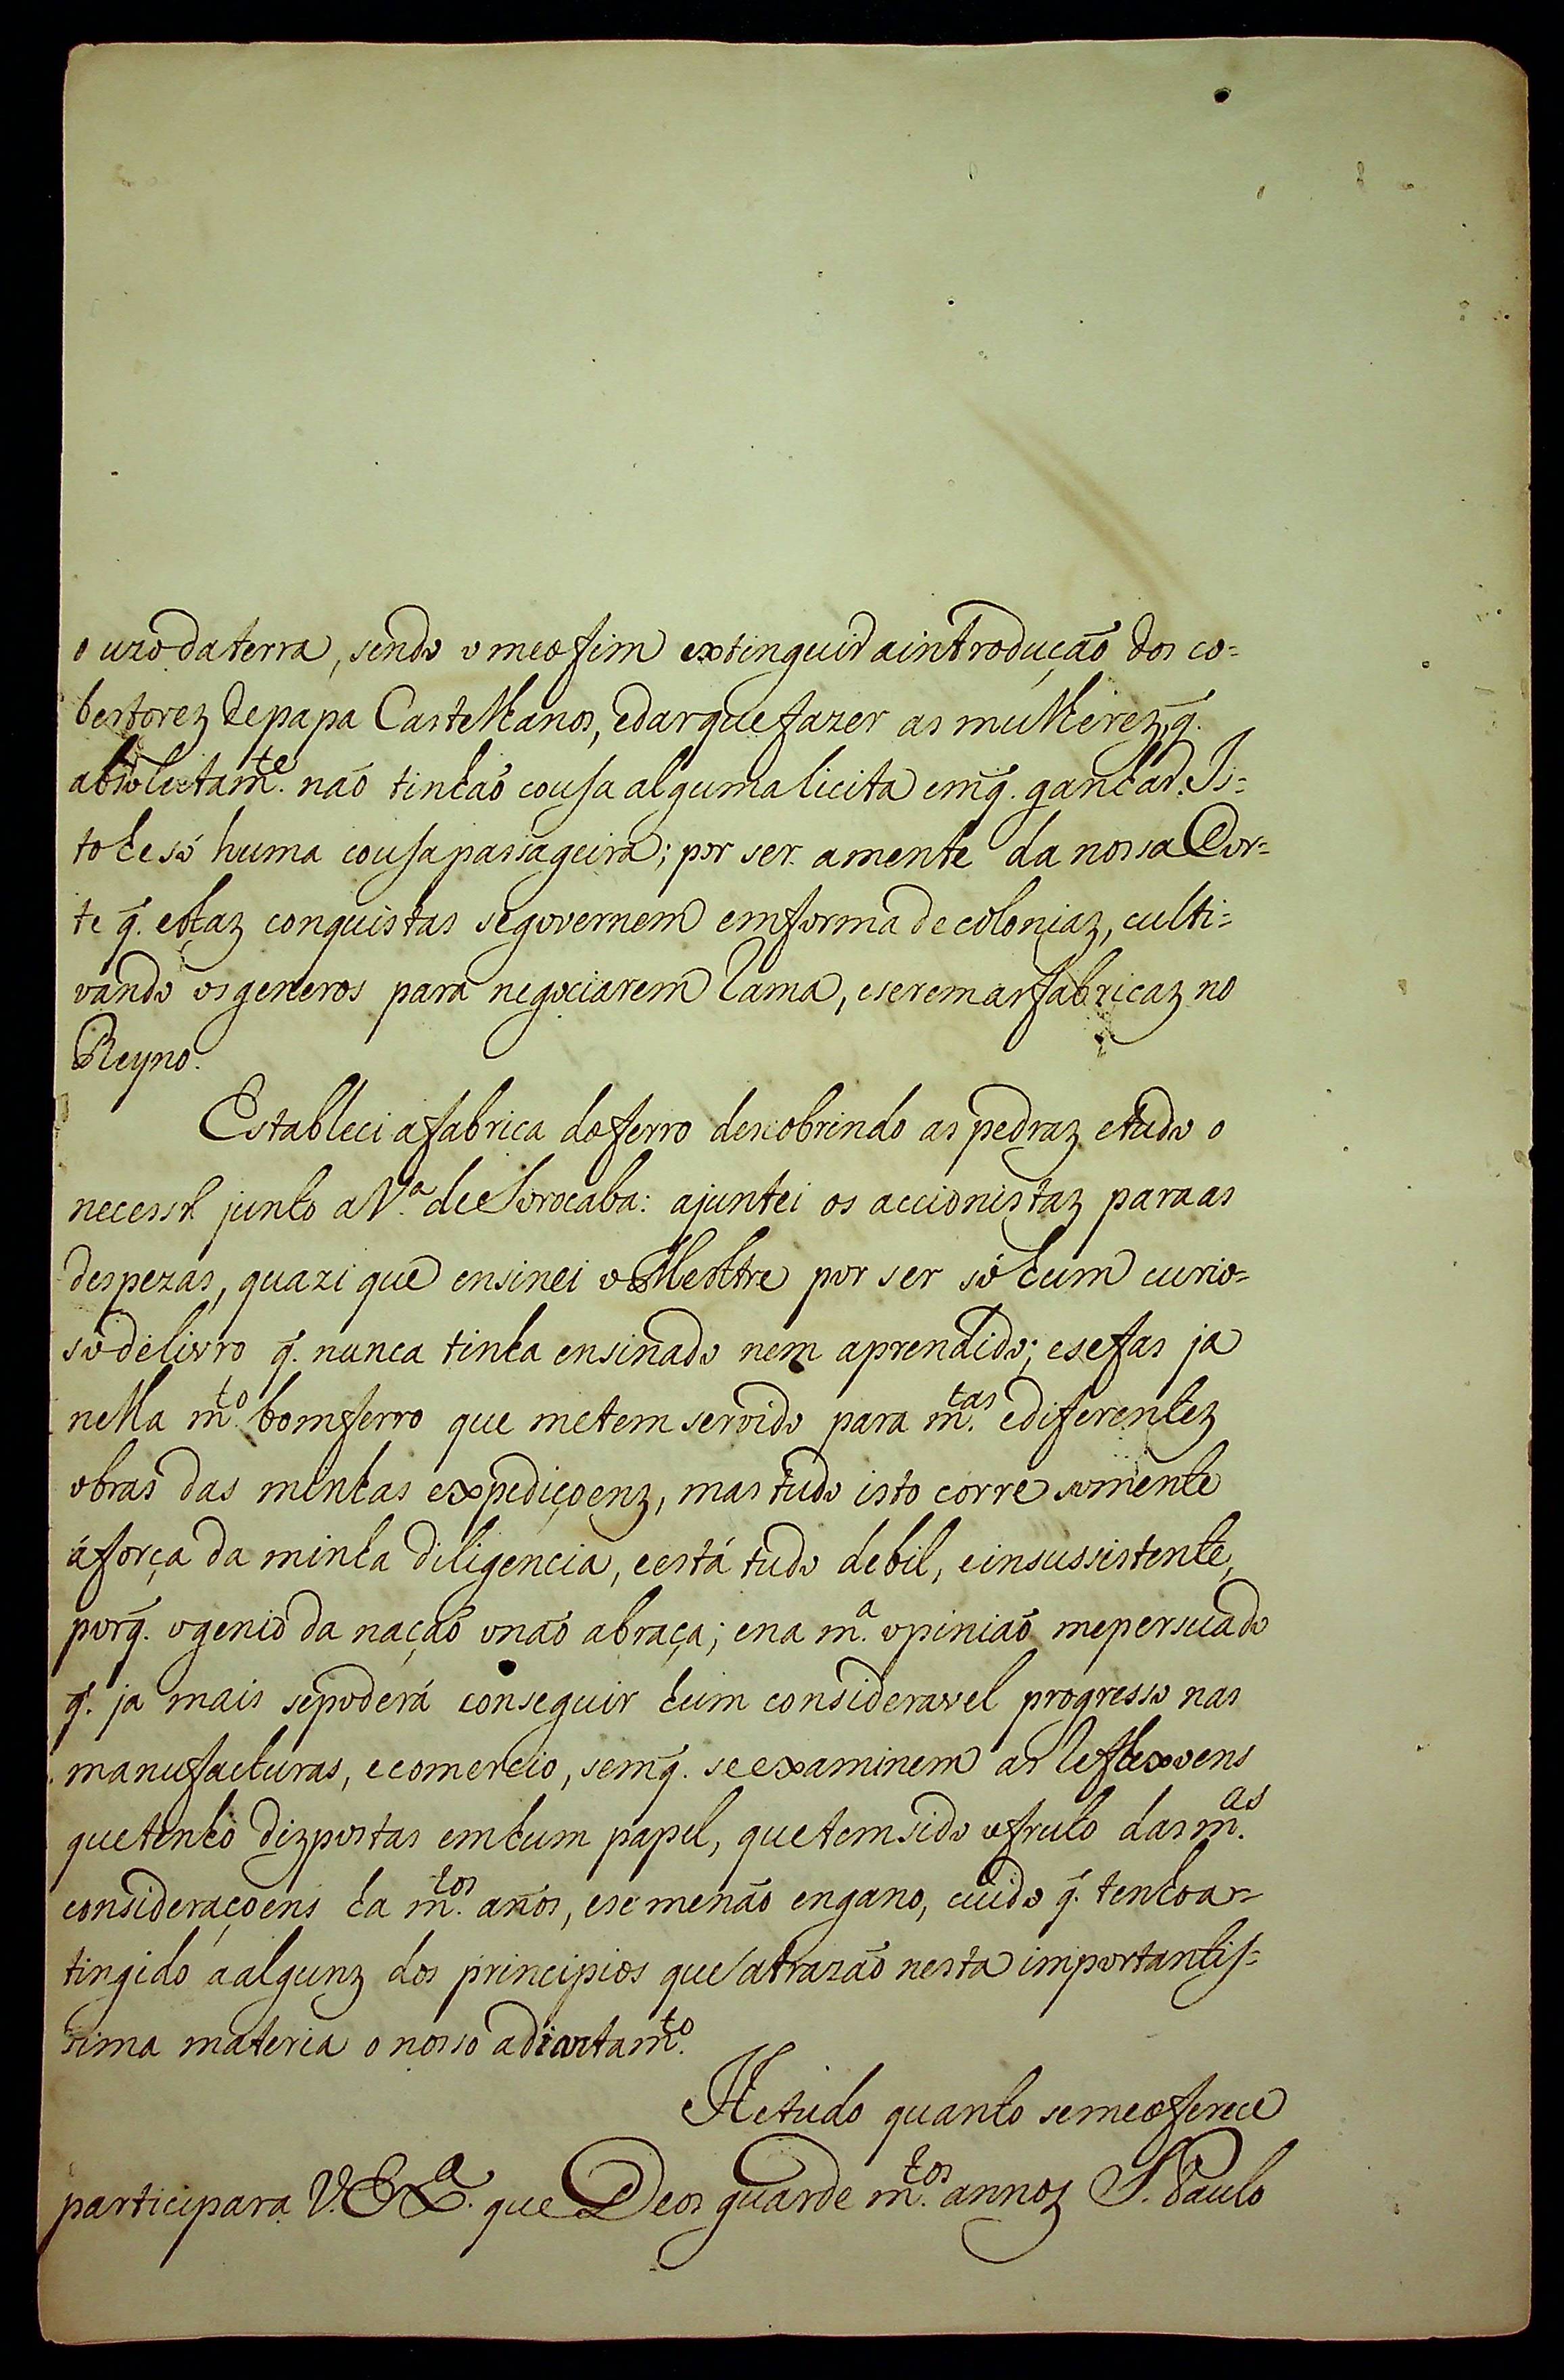 o uzo da terra, sendo o meo fim extinguir a introdução dos co=
bertorez de papa Castelhanos, e dar que fazer as mulherez, q̃.
absolutam.te não tinhão cousa alguma licita em q̃. ganhar. Is=
to he só huma cousa passageira; por ser a mente da nossa Cor=
te q̃. estaz conquistas se governem em forma de coloniaz, culti=
vando os generos para negociarem Rama, e serem as fabricaz no
Reyno.
Estableci a fabrica do ferro descobrindo as pedraz e tudo o
necessr.º junto a V.a de Sorocaba: ajuntei os accionistaz para as
despezas, quazi que ensinei o Mestre por ser só hum curio=
so de livro q̃. nunca tinha ensinado nem aprendido; e se fas ja
nella m.to bom ferro que me tem servido para m.tas e diferentez
obras das minhas expediçoenz, mas tudo isto corre somente
á força da minha diligencia, e está tudo debil, e insussistente,
porq̃. o genio da nação o não abraça; e na m.a opinião me persuado
q̃. ja mais se poderá conseguir hum consideravel progresso nas
manufacturas, e comercio, sem q̃. se examinem as Reflexoens
que tenho dizpostas em hum papel, que tem sido o fruto das m.as
consideraçoens ha m.tos años, e se me não engano, cuido q̃. tenho a=
tingido a algunz dos principios que atrazão nesta importantis=
sima materia o nosso adiantam.to
He tudo quanto se me oferece
participar a V. Ex.a que Deos guarde m.tos annoz S. Paulo